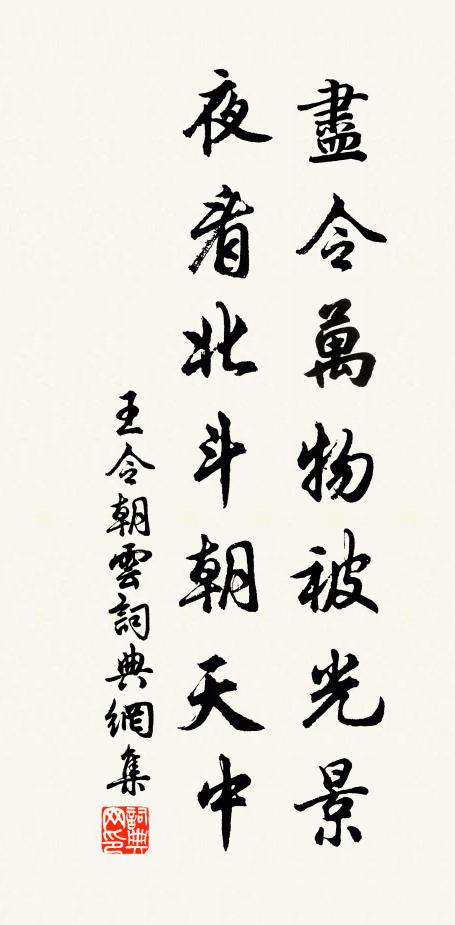 盡令萬物被光景
夜看北斗朝天中
王令朝雲詞典網集
詞典网印